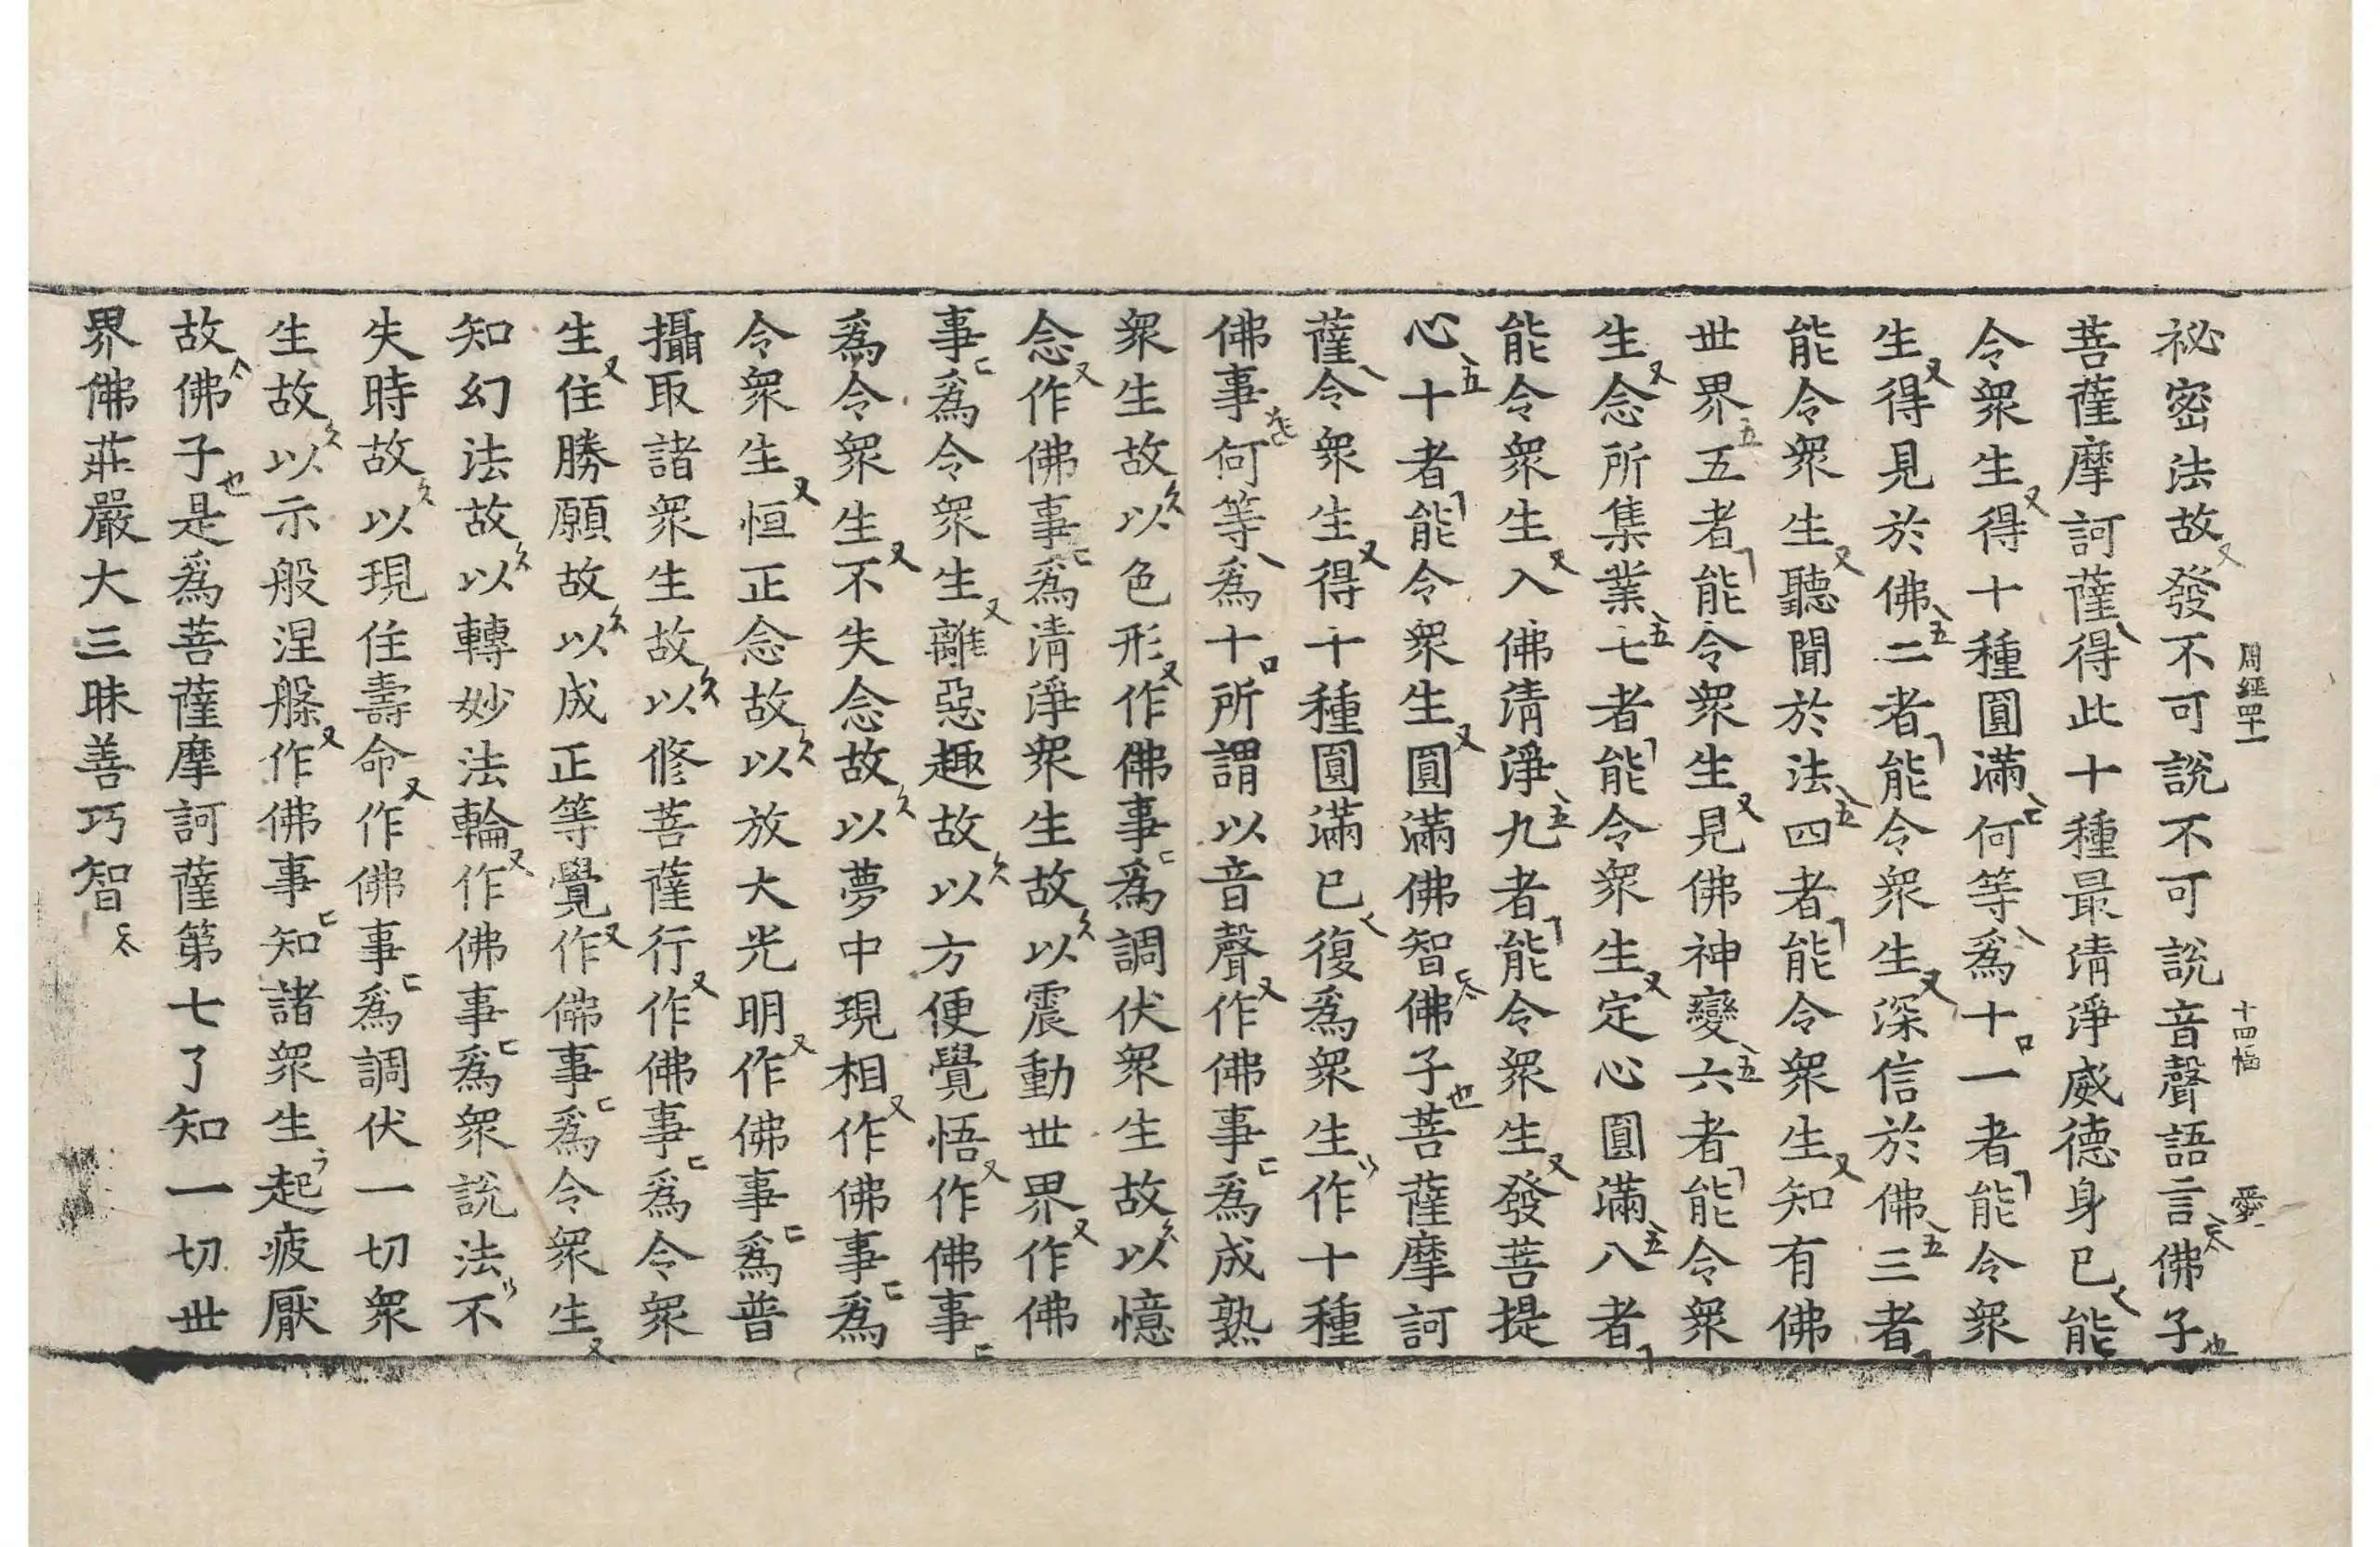 周經四十一 十四幅 愛
祕密法故發不可說不可說音聲語言佛子
菩薩摩訶薩得此十種最清淨威德身已能
令衆生得十種圓滿何等爲十一者能令衆
生得見於佛二者能令衆生深信於佛三者
能令衆生聽聞於法四者能令衆生知有佛
世界五者能令衆生見佛神變六者能令衆
生念所集業七者能令衆生定心圓滿八者
能令衆生入佛清淨九者能令衆生發菩提
心十者能令衆生圓滿佛智佛子菩薩摩訶
薩令衆生得十種圓滿已復爲衆生作十種
佛事何等爲十所謂以音聲作佛事爲成熟
衆生故以色形作佛事爲調伏衆生故以憶
念作佛事爲清淨衆生故以震動世界作佛
事爲令衆生離惡趣故以方便覺悟作佛事
爲令衆生不失念故以夢中現相作佛事爲
令衆生恒正念故以放大光明作佛事爲普
攝取諸衆生故以修菩薩行作佛事爲令衆
生住勝願故以成正等覺作佛事爲令衆生
知幻法故以轉妙法輪作佛事爲衆說法不
失時故以現住壽命作佛事爲調伏一切衆
生故以示般涅槃作佛事知諸衆生起疲厭
故佛子是爲菩薩摩訶薩第七了知一切世
界佛莊嚴大三昧善巧智